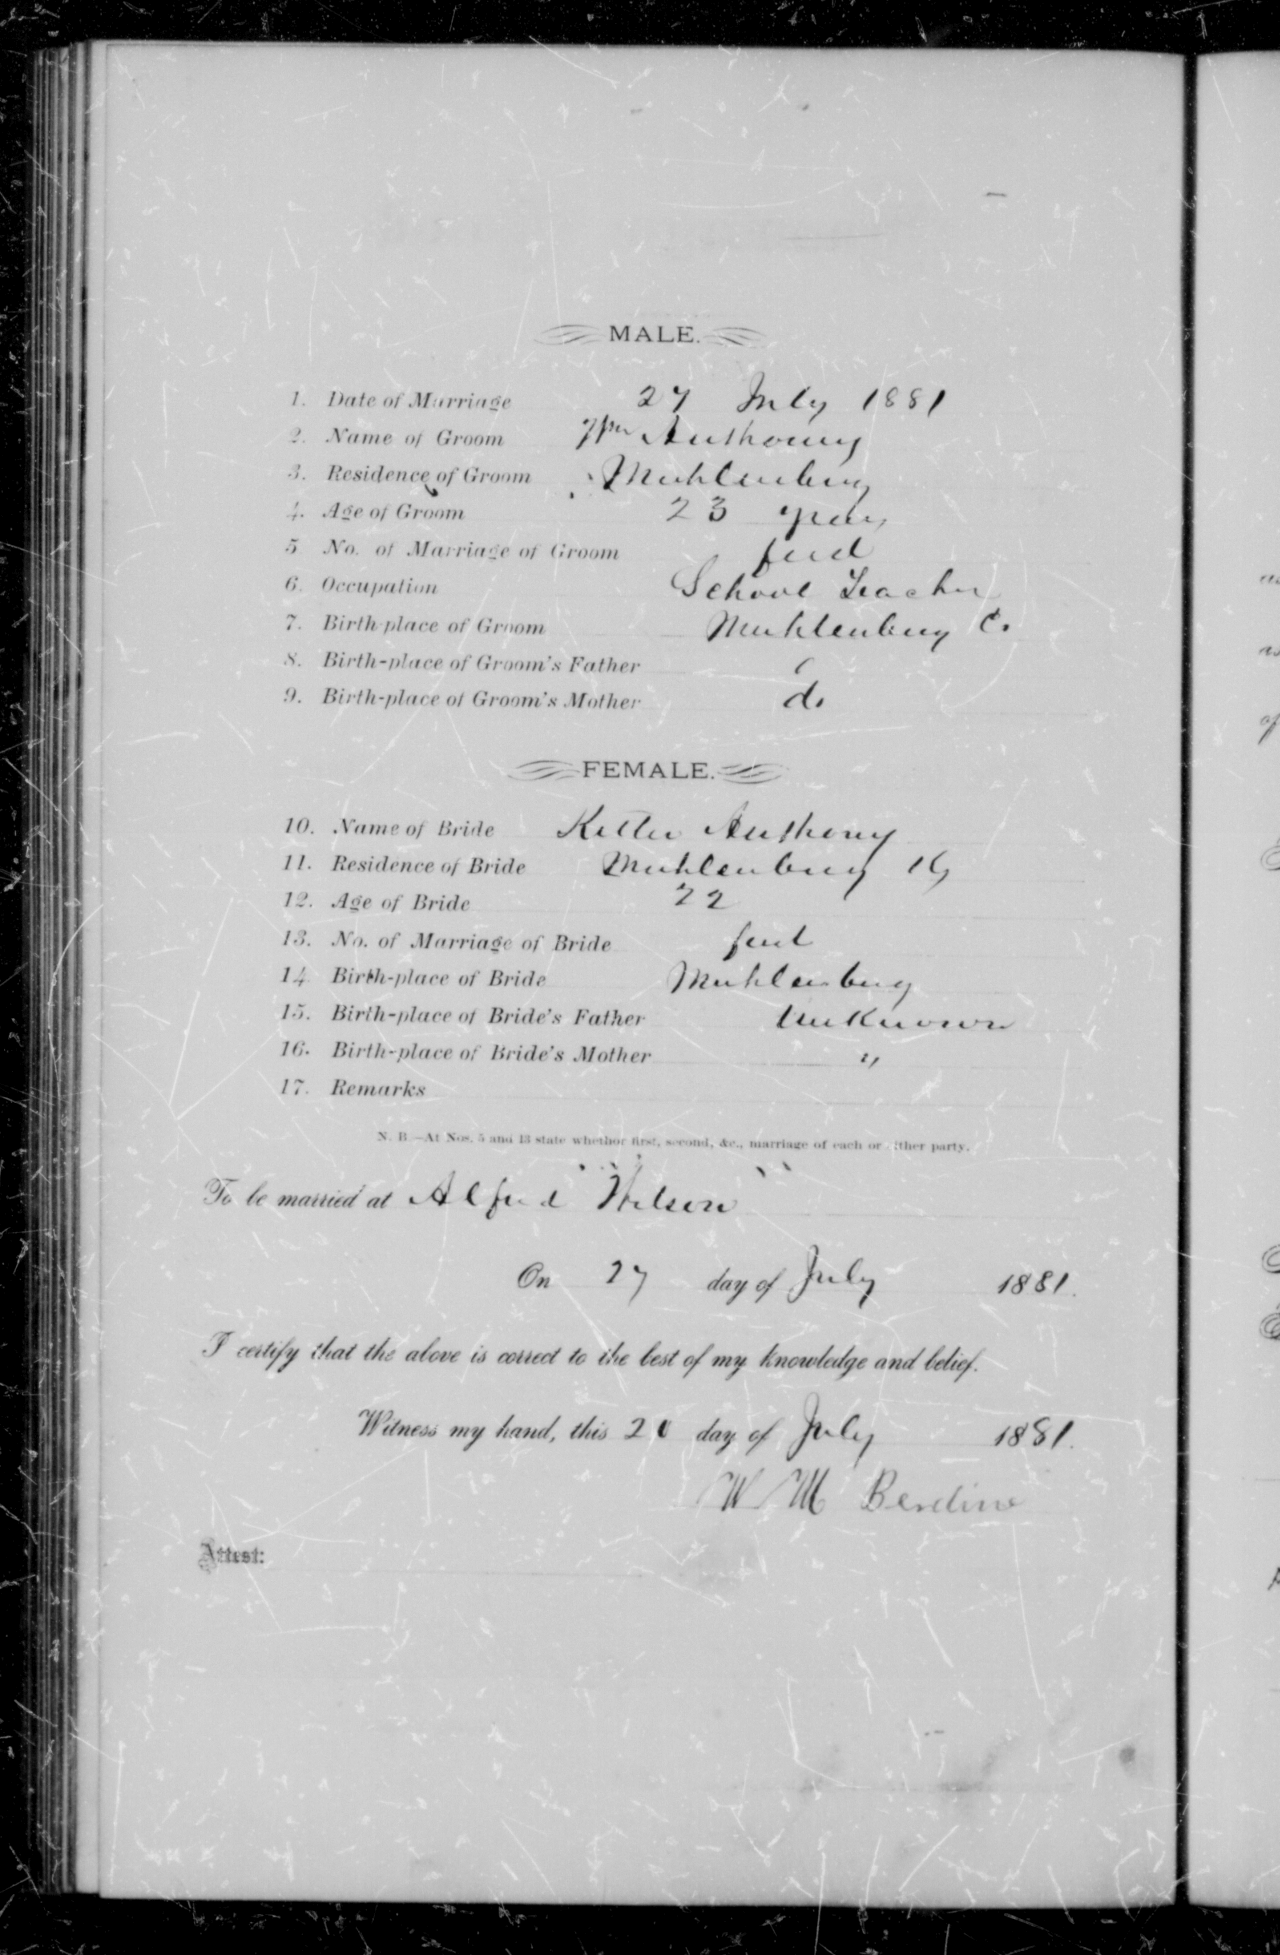 MALE.
1. Date of Marriage 27 July 1881
2. Name of Groom Wm Anthony
3. Residence of Groom Muhlenburg
4. Age of Groom 23 years
5 No. of Marriage of Groom first
6. Occupation School Teacher
7. Birth-place of Groom Muhlenburg Co
8. Birth-place of Groom's Father
9. Birth-place of Groom's Mother do
FEMALE.
10. Name of Bride Anthony
11. Residence of Bride Muhlenburg Ky
12. Age of Bride 22
13. No. of Marriage of Bride first
14 Birth-place of Bride Muhlenburg
15. Birth-place of Bride's Father Unknown
16. Birth-place of Bride's Mother "
17. Remarks
N. B.—At Nos. 5 and 13 state whether first, second, &c., marriage of each or either party.
To be married at Alfred Wilson
On 27 day of July 1881.
I certify that the above is correct to the best of my knowledge and belief.
Witness my hand, this day of July 1881.
W M
Attest: